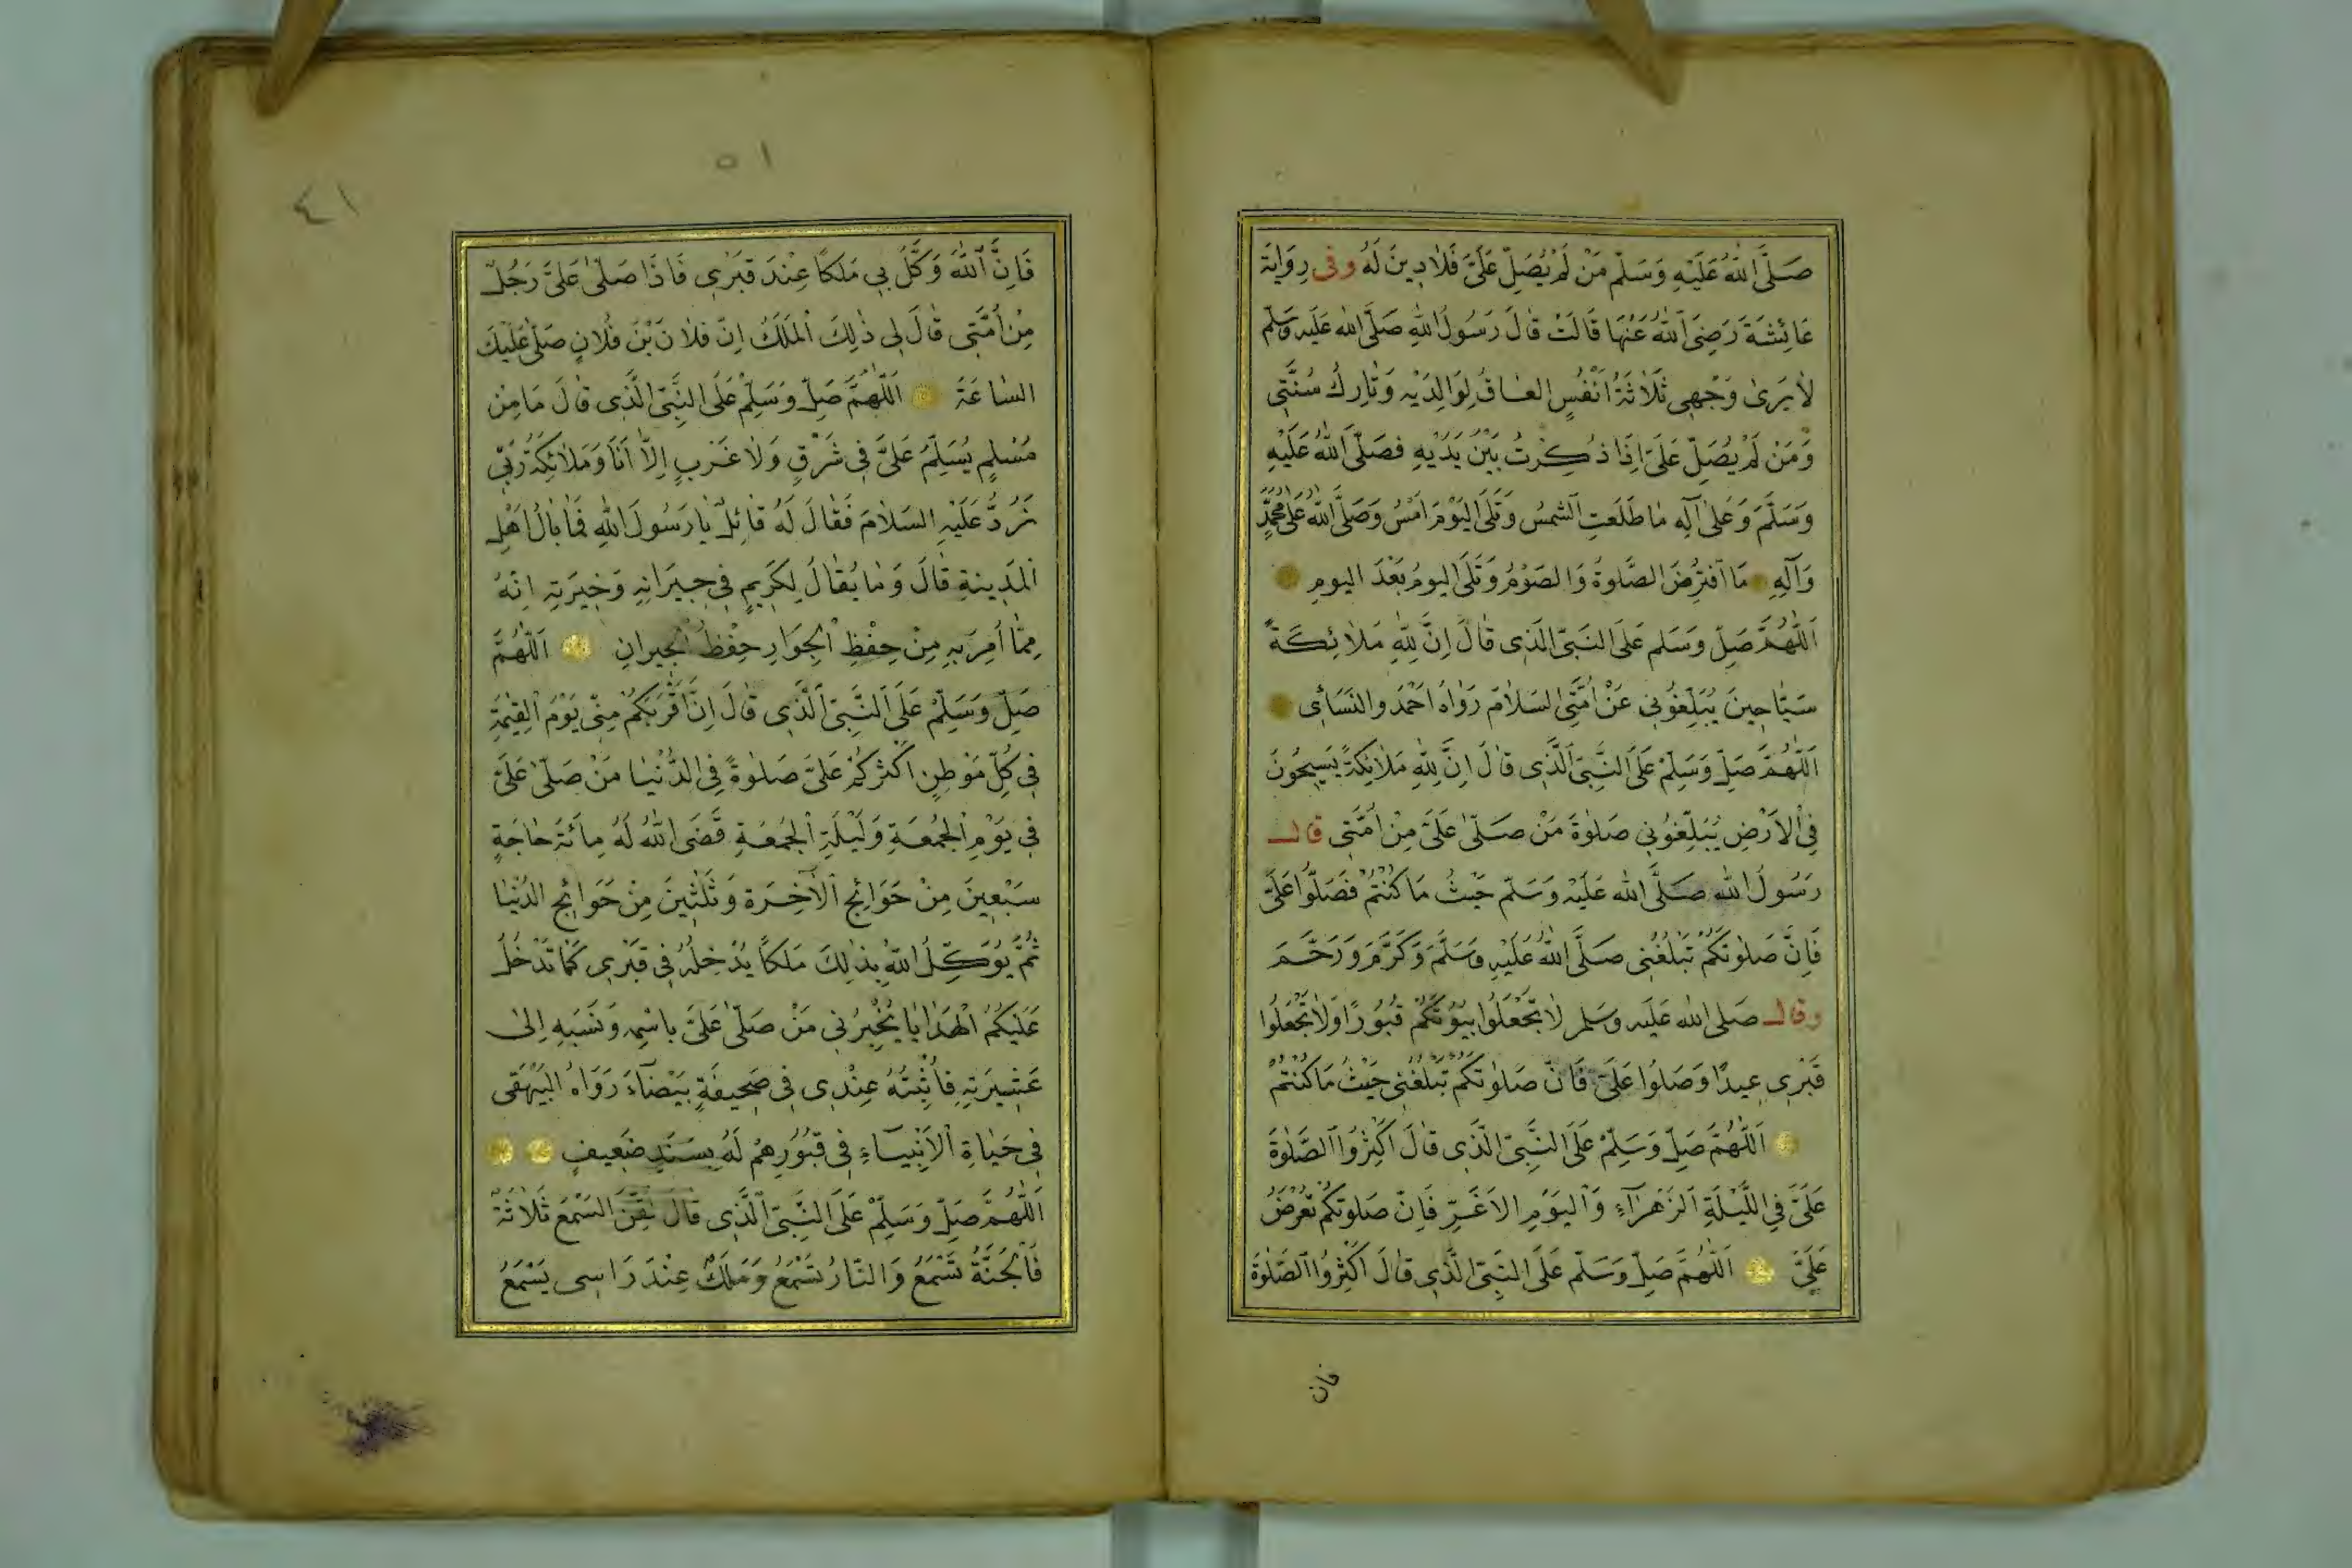 صَلَّى اللهُ عَلَيْهِ وَسَلَّمْ مَنْ لَمْ يُصَلِّ عَلَىَّ فَلَادِينَ لَهُ وفى رِوَايَة
عَائِشَةَ رَضِىَ اللهُ عَنْهَا قَالَتْ قَالَ رَسُولُ اللهِ صَلَّى الله عَلَيه وَسَلّم
لَا يَرىٰ وَجْهِى ثَلَاثَةُ اَنْفُسٍ العَاقُ لِوَالِدَيْهِ وَتَارِكُ سُنَّتِى
وَمَنْ لَمْ يُصَلِّ عَلَىَّ اِذَا ذُكِرْتُ بَيْنَ يَدَيْهِ فَصَلَّى اللهُ عَلَيْهِ
وَسَلَّمَ وَعَلىٰ آلِهِ مَا طَلَعَتِ الشمسُ وَتَلَى اليَوْمَ اَمْسُ وَصَلَّى اللهُ عَلىٰ مُحَمَّدٍ
وَآلِهِ مَا اَفتُرِضَ الصَّلوةُ وَالصَوْمُ وَتَلَى اليومُ بَعْدَ اليومِ
اَللّٰهُمَّ صَلِّ وَسَلم عَلَى النَبىّ الَذِى قَالَ اِنَّ لِلّٰهِ مَلَائِكَةً
سَيَّاحِينَ يُبَلِّغُونِى عَنْ اُمَّتِى السَلَامَ رَوَاهُ اَحْمَد والنَسَائِى
اَللّٰهُمَّ صَلِّ وَسَلِّمْ عَلَى النَّبِىّ الَّذِى قَالَ اِنَّ لِلّٰهِ مَلَائِكَةً يَسِيحُونَ
فِى الاَرْضِ يُبَلِّغُونِى صَلوٰةَ مَنْ صَلّىٰ عَلَىَّ مِنْ اُمَّتِى قال
رَسُولُ الله صَلَّى الله عَلَيْهِ وَسَلّم حَيْثُ مَا كُنْتُمْ فَصَلُّوا عَلَىَّ
فَاِنَّ صَلوٰتَكُمْ تَبْلُغُنِى صَلَّى اللهُ عَلَيْهِ وَسَلَّمَ وَكَرَّمَ وَرَحَّمَ
وقال صَلى الله عَلَيه وسَلم لَا تَجْعَلُوا بُيُوتَكُمْ قُبُورًا وَلَا تَجْعَلُوا
قَبْرِى عِيدًا وَصَلوُا عَلَىَّ فَاِنَّ صَلوٰتَكُمْ تَبْلُغُنِى حَيْثُ مَا كُنْتُمْ
اَللّٰهُمَّ صَلِّ وَسَلِّمْ عَلَى النَّبِىّ الَّذِى قَالَ اَكْثِرُوا الصَّلٰوةَ
عَلَىَّ فِى اللَّيْلَةِ الزَهْرَآءِ وَاليَوْمِ الاَغَرِّ فَاِنَّ صَلوتكُمْ تُعْرَضُ
عَلَىَّ اَللّٰهُمَّ صَلِّ وَسَلّم عَلَى النَبِىّ الَّذِى قَالَ اَكْثِرُوا الصَّلوٰةَ
فان
٥١
٤١
فَاِنَّ اللهَ وَكَّلَ بِى مَلَكًا عِنْدَ قَبْرِى فَاذَا صَلّىٰ عَلَىَّ رَجُلٌ
مِنْ اُمَّتِى قَالَ لِى ذٰلِكَ الْمَلَكُ اِنَّ فلَانَ بْنَ فُلَانٍ صَلّىٰ عَلَيْكَ
السَّاعَةَ اَللّٰهُمَّ صَلِّ وَسَلِّمْ عَلَى النَّبِىّ الَّذِى قَالَ مَا مِنْ
مُسْلِمٍ يُسَلِّمُ عَلَىَّ فِى شَرْقٍ وَلَا غَرْبٍ اِلاَّ اَنَا وَمَلَائِكَةُ رَبِّى
نَرُدُّ عَلَيْهِ السَلَامَ فَقَالَ لَهُ قَائِلٌ يَا رَسُولَ اللهِ فَمَا بَالُ اَهْلِ
المَدِينةِ قَالَ وَمَا يُقَالُ لِكَرِيمٍ فِى جِيرَانِهِ وَخِيرَتِهِ اِنَّهُ
مِمَّا اُمِرَ بِهِ مِنْ حِفْظِ الْجِوَارِ حِفْظُ الْجِيرانِ اَللّٰهُمَّ
صَلِّ وَسَلِّمْ عَلَى النَّبِىّ الَّذِى قَالَ اِنَّ اَقْرَبَكُمْ مِنِّى يَوْمَ القِيٰمَةِ
فِى كُلِّ مَوْطِنٍ اَكْثَرُكُمْ عَلَىَّ صَلوٰةً فِى الدُّنْيَا مَنْ صَلّىٰ عَلَىَّ
فِى يَوْمِ الْجُمُعَةِ وَلَيْلَةِ الْجُمُعَةِ قَضَى اللهُ لَهُ مِائَةَ حَاجَةٍ
سَبْعِينَ مِنْ حَوَائِجِ الآخِرَةِ وَثَلٰثِينَ مِنْ حَوَائِجِ الدُنْيَا
ثُمَّ يُوَكِّلُ اللهُ بِذٰلِكَ مَلَكًا يُدْخِلُهُ فِى قَبْرِى كَمَا تَدْخُلُ
عَلَيْكُمُ الْهَدَايَا يُخْبِرُنِى مَنْ صَلّىٰ عَلَىَّ بِاسْمِهِ وَنَسَبِهِ اِلىٰ
عَشِيرَتِهِ فَاُثْبِتُهُ عِنْدِى فِى صَحِيفَةٍ بَيْضَآءَ رَوَاهُ البَيْهَقى
فِى حَيَاةِ الْاَنْبِيَآءِ فِى قبُورِهِمْ لَهُ بِسَنَدٍ ضَعِيفٍ
اَللّٰهُمَّ صَلِّ وَسَلِّمْ عَلَى النَّبِىّ الَّذِى قَالَ السَّمْعَ ثَلَاثَةٌ
فَالْجَنَّةُ تَسْمَعُ وَالنَّارُ تَسْمَعُ وَمَلَكٌ عِنْدَ رَاسِى يَسْمَعُ